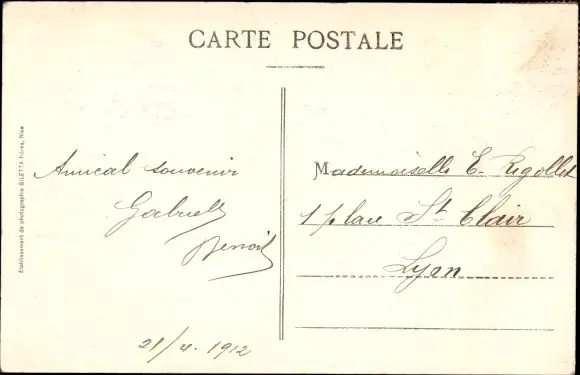 CARTE POSTALE
Etablissement de photographie GILETTA frères, Nice
Amical souvenir
Gabrielle
Benoit
21/4. 1912
Mademoiselle E. Rigollet
1 place St Clair
Lyon